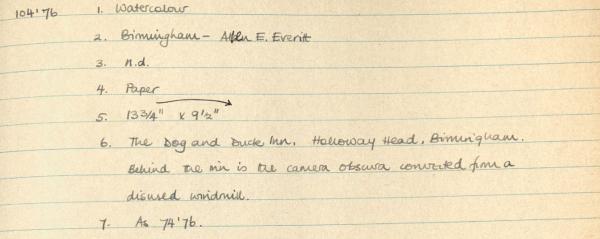 104'76 1. Watercolour
2. Birmingham - Allen E. Everitt
3. n.d.
4. Paper
5. 13 3/4" x 9 1/2"
6. The Dog and Duck Inn, Holloway Head, Birmingham.
Behind the inn is the camera obscura converted from a
disused windmill.
7. As 74'76.